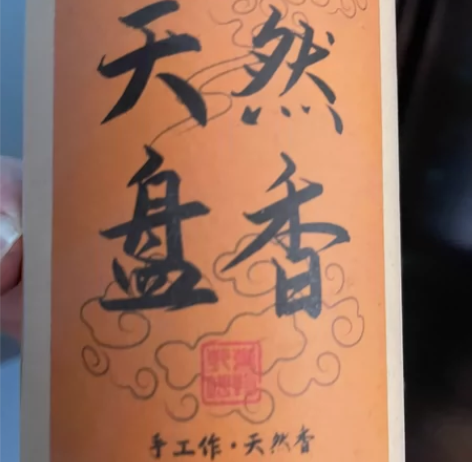 天然
盘香
手工作·天然香